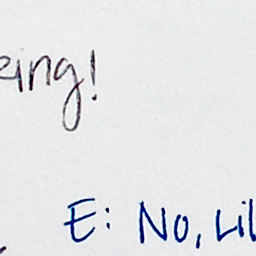 eing!
E: No, Lil